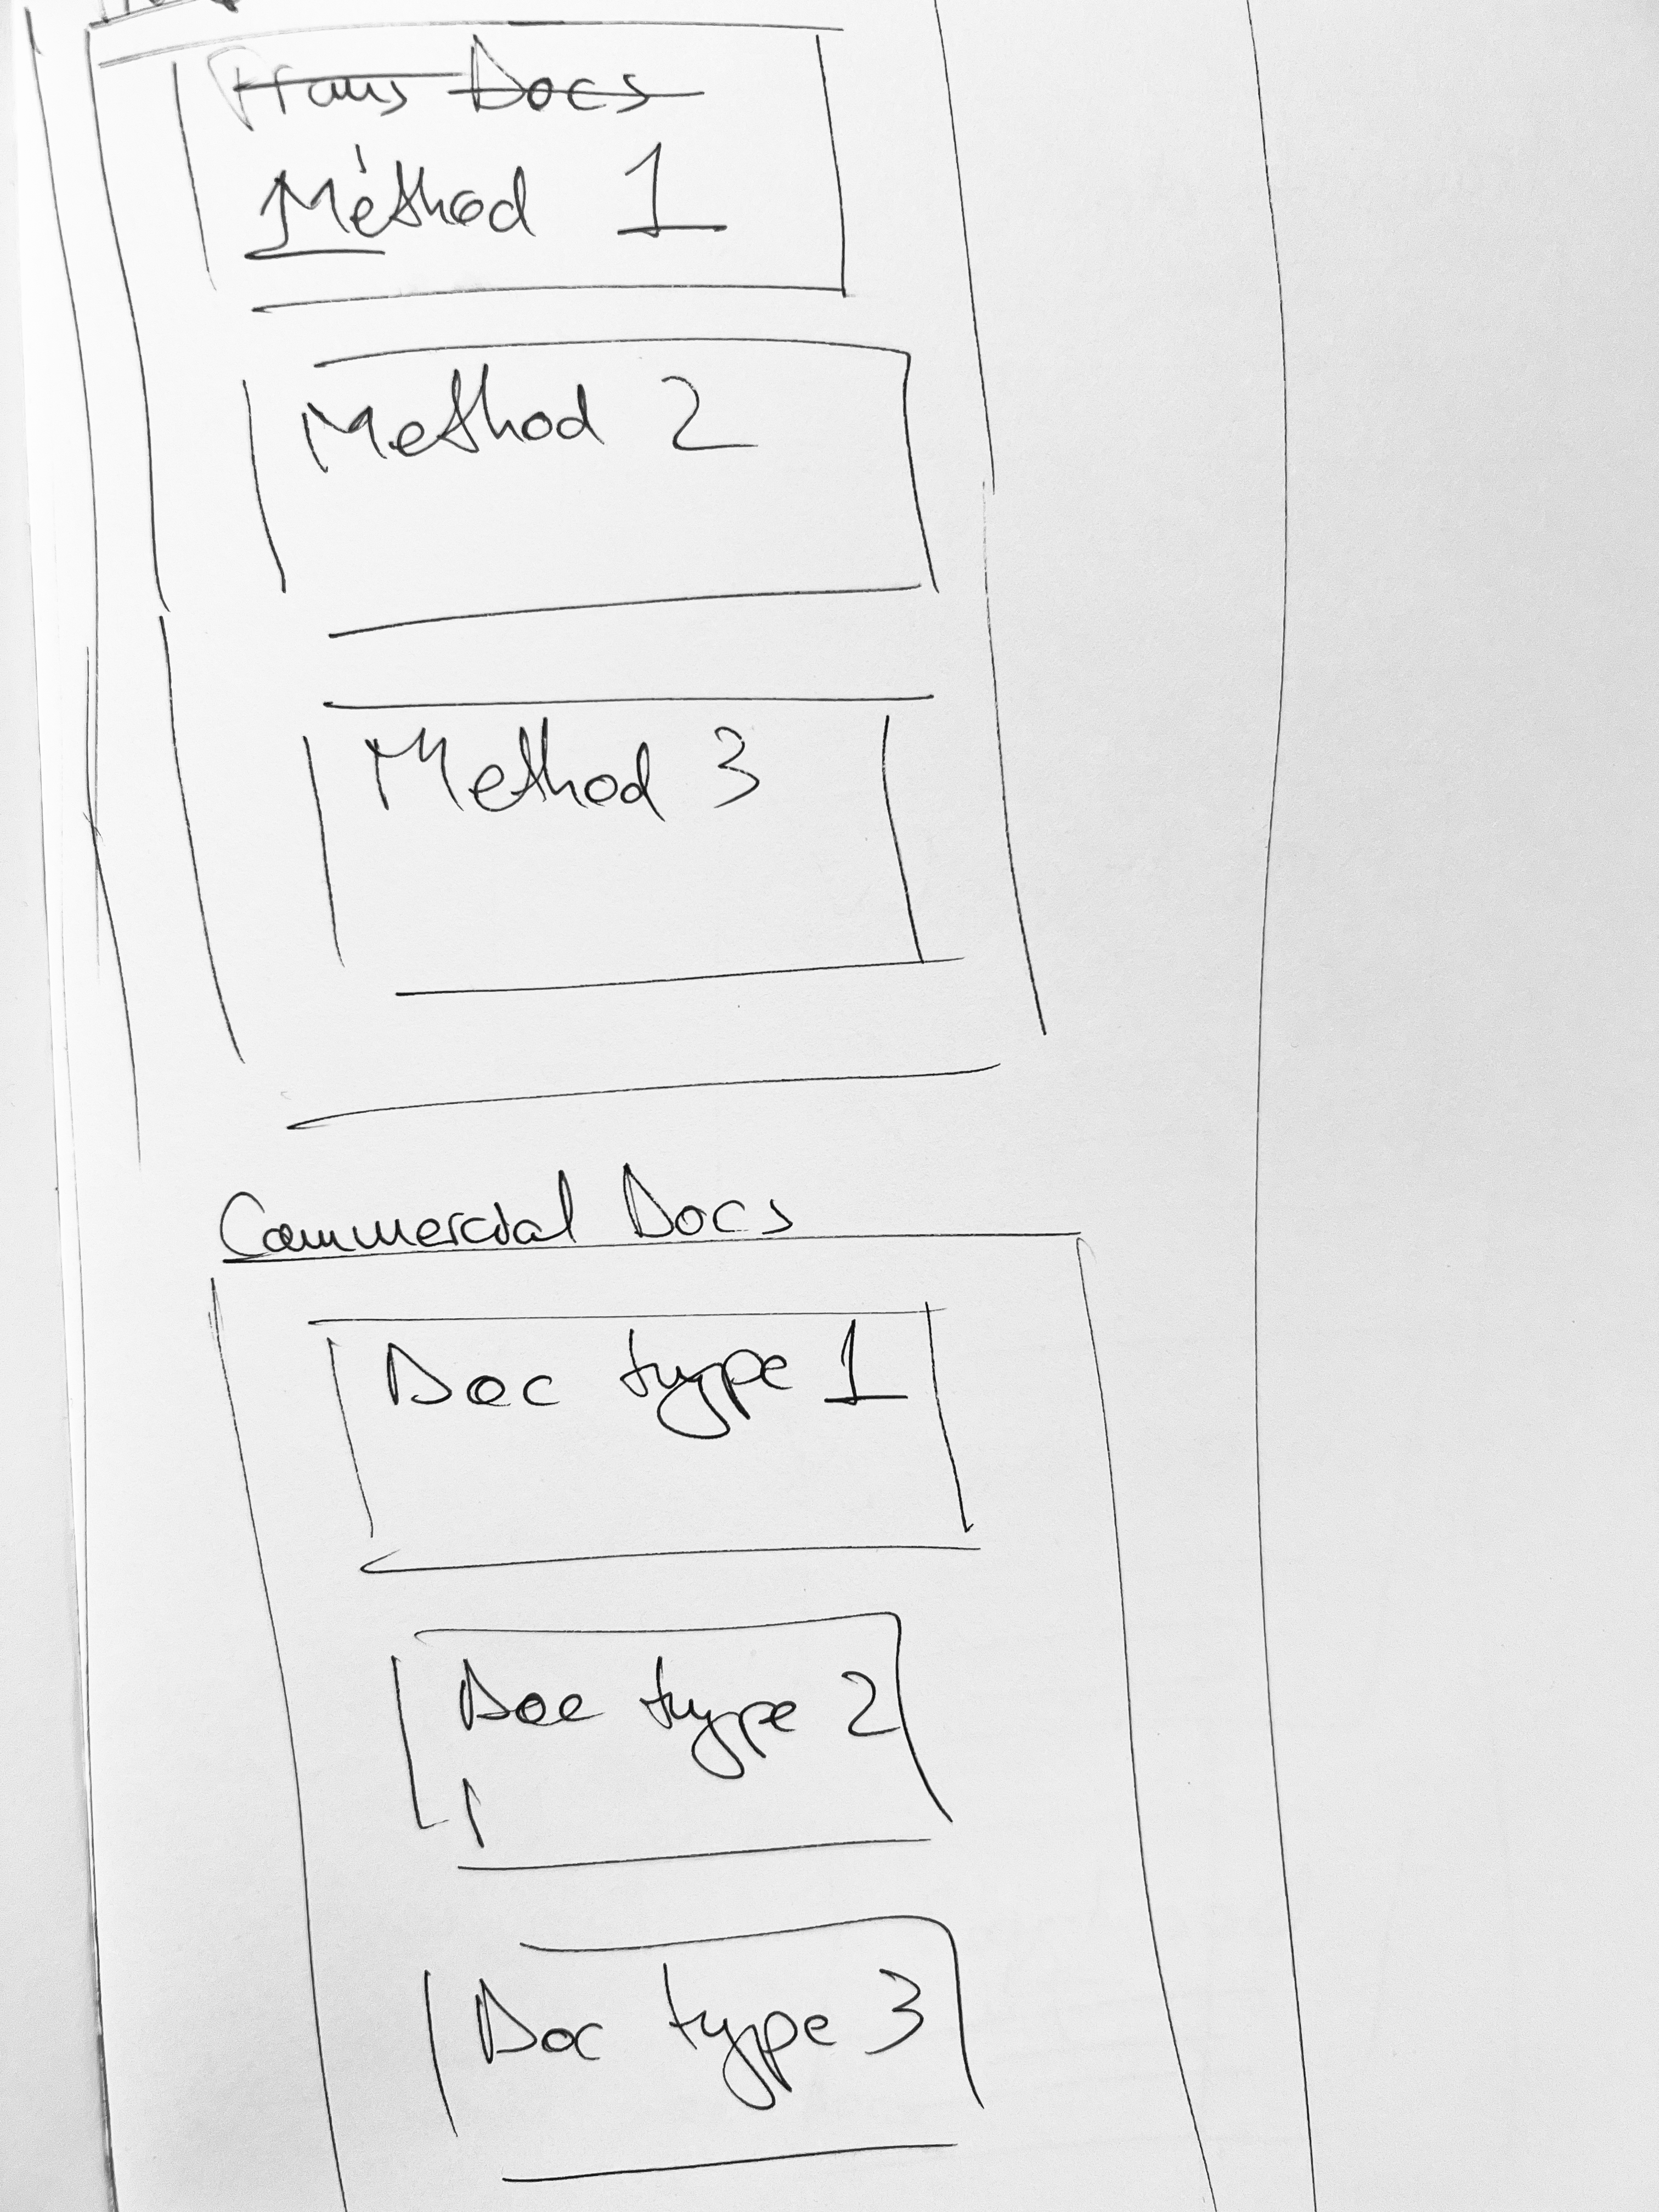 Trans Docs
Method 1
Method 2
Method 3
Commercial Docs
Doc type 1
Doc type 2
Doc type 3